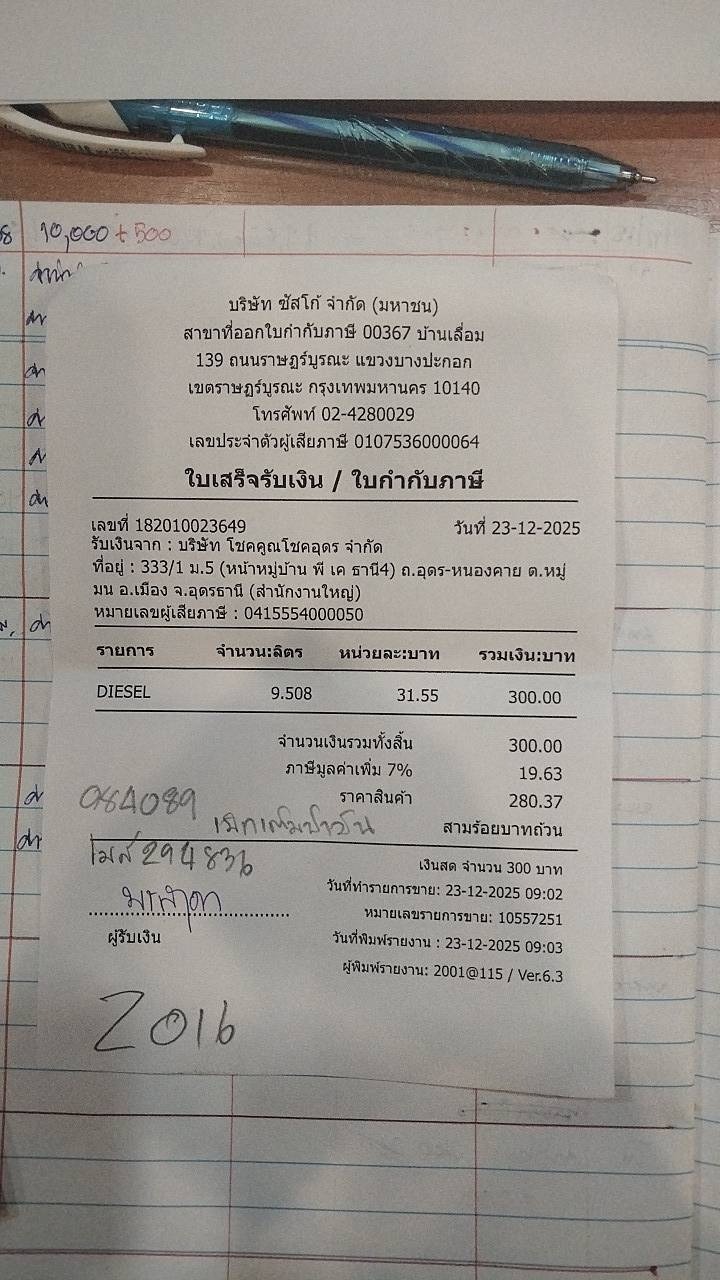 10,000 + 500
บริษัท ซัสโก้ จำกัด (มหาชน)
สาขาที่ออกใบกำกับภาษี 00367 บ้านเลื่อม
139 ถนนราษฎร์บูรณะ แขวงบางปะกอก
เขตราษฎร์บูรณะ กรุงเทพมหานคร 10140
โทรศัพท์ 02-4280029
เลขประจำตัวผู้เสียภาษี 0107536000064
ใบเสร็จรับเงิน / ใบกำกับภาษี
เลขที่ 182010023649 วันที่ 23-12-2025
รับเงินจาก : บริษัท โชคคูณโชคอุดร จำกัด
ที่อยู่ : 333/1 ม.5 (หน้าหมู่บ้าน พี เค ธานี4) ถ.อุดร-หนองคาย ต.หมู่
มน อ.เมือง จ.อุดรธานี (สำนักงานใหญ่)
หมายเลขผู้เสียภาษี : 0415554000050
รายการ จำนวน:ลิตร หน่วยละ:บาท รวมเงิน:บาท
DIESEL 9.508 31.55 300.00
จำนวนเงินรวมทั้งสิ้น 300.00
ภาษีมูลค่าเพิ่ม 7% 19.63
084089 ราคาสินค้า 280.37
สามร้อยบาทถ้วน
ไมล์ 294836 เงินสด จำนวน 300 บาท
วันที่ทำรายการขาย: 23-12-2025 09:02
หมายเลขรายการขาย: 10557251
ผู้รับเงิน วันที่พิมพ์รายงาน : 23-12-2025 09:03
ผู้พิมพ์รายงาน: 2001@115 / Ver.6.3
2016